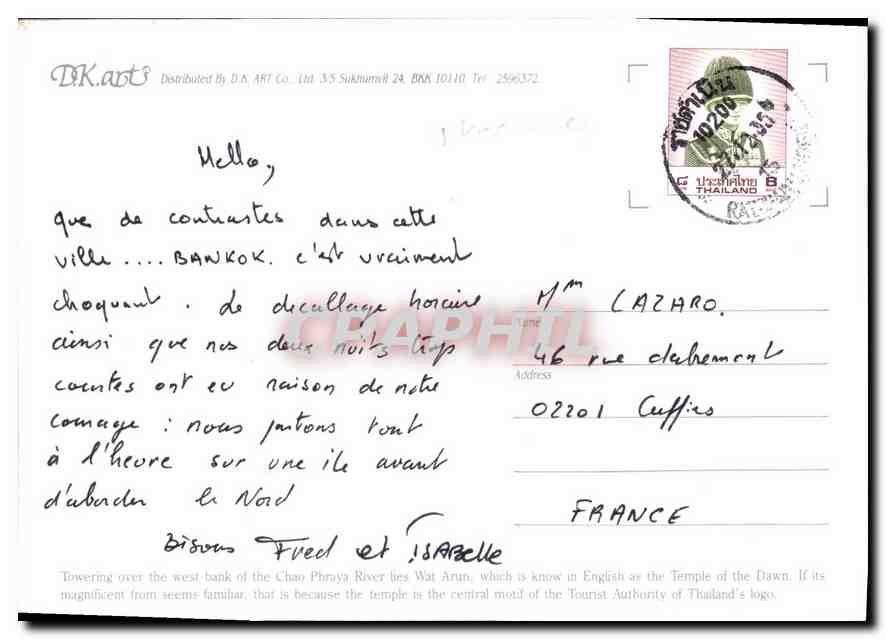 D.K.art's Distributed By D.K. ART Co., Ltd. 3/5 Sukhumvit 24, BKK 10110. Tel 2596372.
ราชดำเนิน
10200
15
๘ ประเทศไทย 8
THAILAND
Hello,
que de contrastes dans cette
ville .... BANKOK. c'est vraiment
choquant. Le decallage horaire
ainsi que nos deux nuits trop
courtes ont eu raison de notre
courage : nous partons tout
à l'heure sur une ile avant
d'aborder le Nord
Bisous Fred et ISABelle
Mm LAZARO.
Name
46 rue
Address
02201 Cuffies
FRANCE
CPAPHIL
Towering over the west bank of the Chao Phraya River lies Wat Arun, which is know in English as the Temple of the Dawn. If its
magnificent from seems familiar, that is because the temple is the central motif of the Tourist Authority of Thailand's logo.